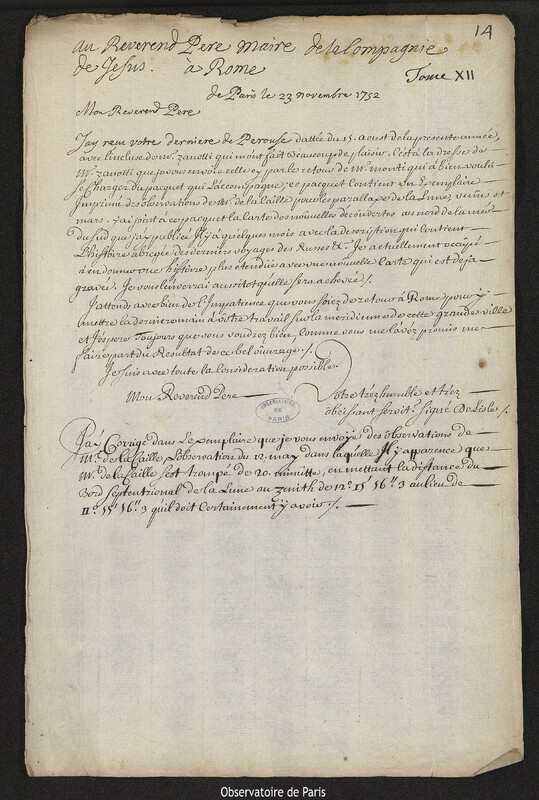 14
Au Reverend Pere Maire de la Compagnie
de Jesus. à Rome
Tome XII
de Paris le 23 novembre 1752
Mon Reverend Pere
J'ay recu votre derniere de Perouse dattée du 15. aoust de la presente année,
avec l'incluse de mr. zanotti qui m'ont fait beaucoup de plaisir. C'est à la dresse de
Mr. zanotti que je vous envoie celle cy par le retour de Mr. monti qui a bien voulu
se Charger du pacquet qui l'accompagne; ce pacquet Contient un Exemplaire
Imprimé des observations de Mr. de la Caille pour les parallaxe de la Lune, venus et
mars. j'ai joint à ce pacquet la Carte des nouvelles decouvertes au nord de la mer
du sud que j'ay publiée Il y a quelques mois avec la description qui contient
L'histoire abregée des derniers voyages des Russes &c. Je actuellement occupé
à en donner une histoire plus etendüe avec une nouvelle Carte qui est deja
gravée. Je vous l'enverai aussitot quelle sera achevée /.
J'attend avec bien de l'Impatience que vous soiez de retour à Rome pour y
mettre la derniere main à votre travail sur la meridienne de cette grande ville
et J'espere Toujours que vous voudrez bien, Comme vous me l'avez promis me
faire part du Resultat de ce bel ouvrage. /.
Je suis avec toute la Consideration possible.
Mon Reverend Pere
Votre trez humble et trez
obeissant servitr. signé De Lisle /.
OBSERVATOIRE
DE
PARIS
J'ay Corrigé dans L'exemplaire que je vous envoye des observations de
Mr. de la Caille L'observation du 12. may dans laquelle Il y apparence que
Mr. de la Caille s'est trompé de 20. minutte, en mettant la distance du
Bord septentrional de la Lune au zenith de 12°. 15' 16". 3 au lieu de
11°. 55' 16". 3 qu'il doit Certainement y avoir /.
Observatoire de Paris